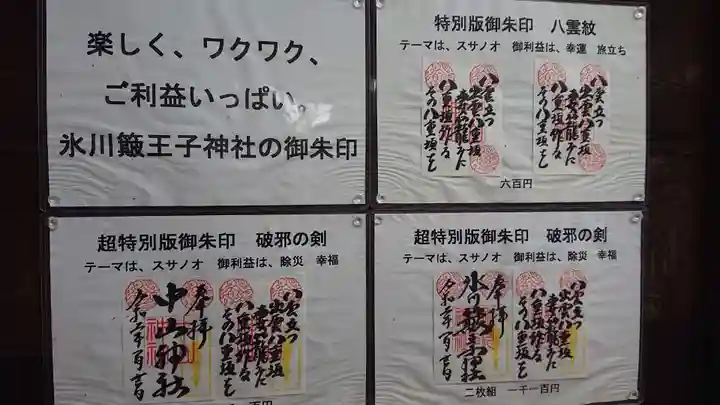 楽しく、ワクワク、
ご利益いっぱい。
氷川簸王子神社の御朱印
特別版御朱印　八雲紋
テーマは、スサノオ　御利益は、幸運　旅立ち
八雲立つ
出雲八重垣
八重垣作る
その八重垣を
八雲立つ
出雲八重垣
八重垣作る
その八重垣を
六百円
超特別版御朱印　破邪の剣
テーマは、スサノオ　御利益は、除災　幸福
奉拝
中山神社
八雲立つ
出雲八重垣
八重垣作る
その八重垣を
百円
超特別版御朱印　破邪の剣
テーマは、スサノオ　御利益は、除災　幸福
奉拝
八雲立つ
出雲八重垣
八重垣作る
その八重垣を
二枚組　一千一百円